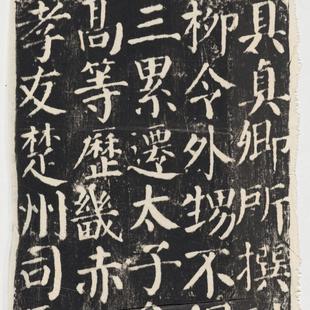 具真卿所撰
柳令外甥不
三累遷太子
髙等歷畿赤
孝友楚州司